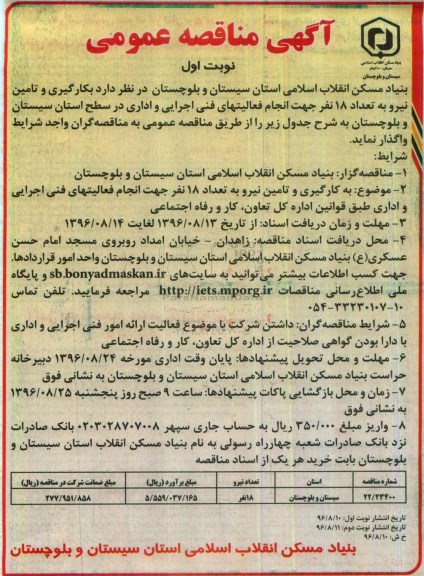 آگهی مناقصه عمومی
بنیاد مسکن انقلاب اسلامی
سیستان و بلوچستان
نوبت اول
بنیاد مسکن انقلاب اسلامی استان سیستان و بلوچستان در نظر دارد بکارگیری و تامین
نیرو به تعداد ۱۸ نفر جهت انجام فعالیتهای فنی اجرایی و اداری در سطح استان سیستان
و بلوچستان به شرح جدول زیر را از طریق مناقصه عمومی به مناقصه‌گران واجد شرایط
واگذار نماید.
شرایط:
۱- مناقصه‌گزار: بنیاد مسکن انقلاب اسلامی استان سیستان و بلوچستان
۲- موضوع: به کارگیری و تامین نیرو به تعداد ۱۸ نفر جهت انجام فعالیتهای فنی اجرایی
و اداری طبق قوانین اداره کل تعاون، کار و رفاه اجتماعی
۳- مهلت و زمان دریافت اسناد: از تاریخ ۱۳۹۶/۰۸/۱۳ لغایت ۱۳۹۶/۰۸/۱۴
۴- محل دریافت اسناد مناقصه: زاهدان - خیابان امداد روبروی مسجد امام حسن
عسکری(ع) بنیاد مسکن انقلاب اسلامی استان سیستان و بلوچستان واحد امور قراردادها.
جهت کسب اطلاعات بیشتر می‌توانید به سایت‌های sb.bonyadmaskan.ir و پایگاه
ملی اطلاع‌رسانی مناقصات http://iets.mporg.ir مراجعه فرمایید. تلفن تماس
۰۵۴-۳۳۲۳۰۱۰۷-۱۰
۵- شرایط مناقصه‌گران: داشتن شرکت با موضوع فعالیت ارائه امور فنی اجرایی و اداری
با دارا بودن گواهی صلاحیت از اداره کل تعاون، کار و رفاه اجتماعی
۶- مهلت و محل تحویل پیشنهادها: پایان وقت اداری مورخه ۱۳۹۶/۰۸/۲۴ دبیرخانه
حراست بنیاد مسکن انقلاب اسلامی استان سیستان و بلوچستان به نشانی فوق
۷- زمان و محل بازگشایی پاکات پیشنهادها: ساعت ۹ صبح روز پنجشنبه ۱۳۹۶/۰۸/۲۵
به نشانی فوق
۸- واریز مبلغ ۳۵۰/۰۰۰ ریال به حساب جاری سپهر ۰۲۰۳۰۲۸۷۰۷۰۰۸ بانک صادرات
نزد بانک صادرات شعبه چهارراه رسولی به نام بنیاد مسکن انقلاب اسلامی استان سیستان و
بلوچستان بابت خرید هر یک از اسناد مناقصه
شماره مناقصه استان تعداد نیرو مبلغ برآورد (ریال) مبلغ ضمانت شرکت در مناقصه (ریال)
۲۲/۲۳۴۰۰ سیستان و بلوچستان ۱۸نفر ۵/۵۵۹/۰۳۷/۱۶۵ ۲۷۷/۹۵۱/۸۵۸
تاریخ انتشار نوبت اول: ۹۶/۸/۱۰
تاریخ انتشار نوبت دوم: ۹۶/۸/۱۱
خ ش: ۹۶/۸/۱۰
بنیاد مسکن انقلاب اسلامی استان سیستان و بلوچستان